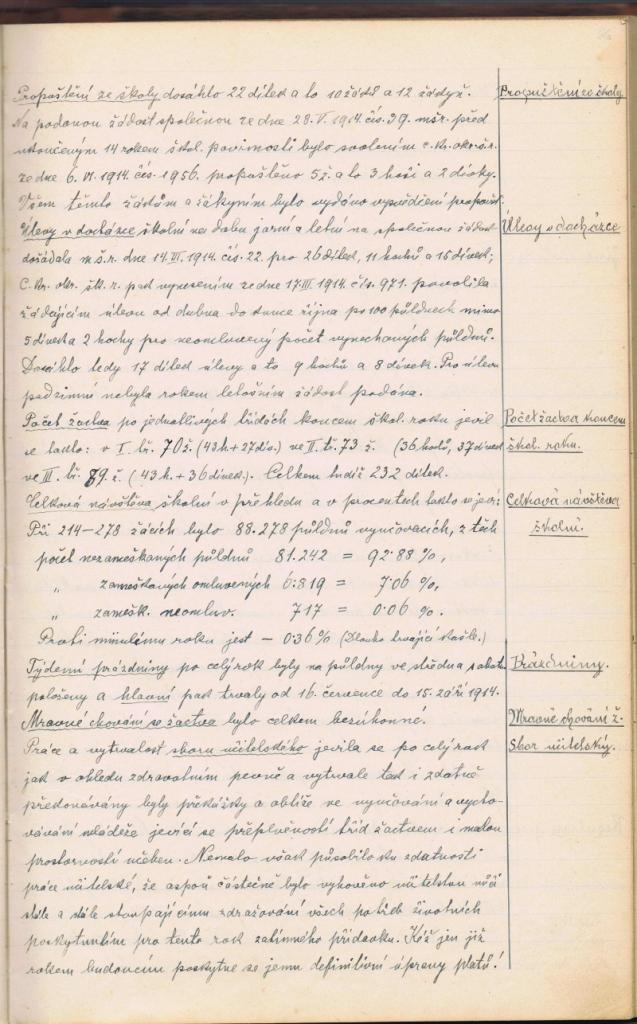 Propuštění ze školy dosáhlo 22 dítek a to 10 žáků a 12 žákyň.
Propuštění ze školy
Na podanou žádost společnou ze dne 28. V. 1914 čís. 39. mšr. před
ukončeným 14 rokem škol. povinnosti bylo svolením c. kr. okr. š. r.
ze dne 6. VI. 1914 čís. 1956. propuštěno 5 ž. a to 3 hoši a 2 dívky.
Všem těmto žákům a žákyním bylo vydáno vysvědčení propoušt.
Úlevy v docházce školní na dobu jarní a letní na společnou žádost
Úlevy v docházce
dožádala m. š. r. dne 14. III. 1914. čís. 22. pro 26 dítek, 11 hochů a 15 dívek;
C. kr. okr. šk. r. pak vynesením ze dne 17. III. 1914. čís. 971. povolila
žádajícím úlevu od dubna do konce října po 100 půldnech mimo
5 dívek a 2 hochy pro neomluvený počet vynechaných půldnů.
Dosáhlo tedy 17 dítek úlevy a to 9 hochů a 8 dívek. Pro úlevu
podzimní nebyla rokem letošním žádost podána.
Počet žactva po jednotlivých třídách koncem škol. roku jevil
Počet žactva koncem
se takto: v I. tř. 70 ž. (43 h + 27 dív.) ve II. tř. 73 ž. (36 hochů, 37 dívek
škol. roku.
ve III. tř. 89 ž. (43 h. + 36 dívek). Celkem tudíž 232 dítek.
Celková návštěva školní v přehledu a v procentech takto se jeví:
Celková návštěva
školní.
Při 214–278 žácích bylo 88.278 půldnů vyučovacích, z těch
počet nezameškaných půldnů 81.242 = 92·88 %,
„ zameškaných omluvených 6·819 = 7·06 %,
„ zamešk. neomluv. 717 = 0·06 %.
Proti minulému roku jest – 0·36 % (Dlouho trvající kašle.)
Týdenní prázdniny po celý rok byly na půldny ve středu a sobotu
Prázdniny.
položeny a hlavní pak trvaly od 16. července do 15. září 1914.
Mravné chování se žactva bylo celkem bezúhonné.
Mravné chování ž.
Práce a vytrvalost sboru učitelského jevila se po celý rok
Sbor učitelský.
jak v ohledu zdravotním pevně a vytrvale tak i zdatně
překonávány byly překážky a obtíže ve vyučování a vycho-
vávání mládeže jevící se přeplněností tříd žactvem i malou
prostorností učeben. Nemálo však působilo ku zdatnosti
práce učitelské, že aspoň částečně bylo vyhověno učitelstvu vůči
stále a stále stoupajícímu zdražování všech potřeb životních
poskytnutím pro tento rok zatímného přídavku. Kéž jen již
rokem budoucím poskytne se jemu definitivní úpravy platů!